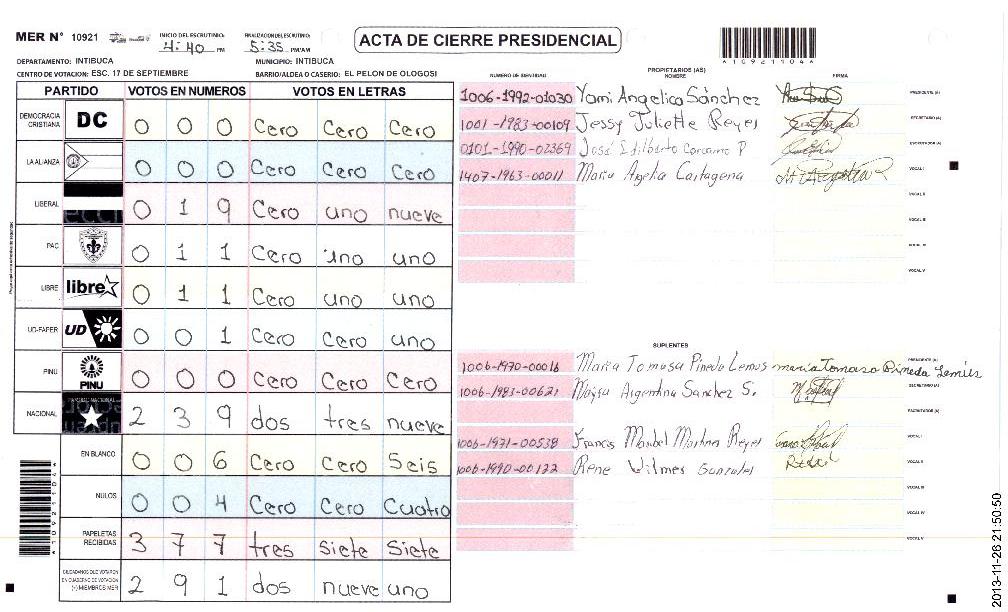 MER N° 10921 INICIO DEL ESCRUTINIO: 4:40 PM FINALIZACION DEL ESCRUTINIO: 5:35 PM/AM ACTA DE CIERRE PRESIDENCIAL *109211044*
DEPARTAMENTO: INTIBUCA MUNICIPIO: INTIBUCA
CENTRO DE VOTACION: ESC. 17 DE SEPTIEMBRE BARRIO/ALDEA O CASERIO: EL PELON DE OLOGOSI
PARTIDO VOTOS EN NUMEROS VOTOS EN LETRAS
DEMOCRACIA CRISTIANA DC 0 0 0 Cero Cero Cero
LA ALIANZA 0 0 0 Cero Cero Cero
LIBERAL 0 1 9 Cero uno nueve
PAC 0 1 1 Cero uno uno
LIBRE libre 0 1 1 Cero uno uno
UD-FAPER UD 0 0 1 Cero Cero uno
PINU PINU 0 0 0 Cero Cero Cero
NACIONAL 2 3 9 dos tres nueve
EN BLANCO 0 0 6 Cero Cero Seis
NULOS 0 0 4 Cero Cero Cuatro
PAPELETAS RECIBIDAS 3 7 7 tres siete siete
CIUDADANOS QUE VOTARON EN CUADERNO DE VOTACION (+) MIEMBROS MER 2 9 1 dos nueve uno
PROPIETARIOS (AS)
NUMERO DE IDENTIDAD NOMBRE FIRMA
1006-1992-01030 Yomi Angelica Sánchez PRESIDENTE (A)
1001-1983-00109 Jessy Juliette Reyes SECRETARIO (A)
0101-1990-02369 José Edilberto Carcamo P ESCRUTADOR (A)
1407-1963-00011 Maria Argelia Cartagena VOCAL I
VOCAL II
VOCAL III
VOCAL IV
VOCAL V
SUPLENTES
1006-1970-00016 Maria Tomasa Pineda Lemus maria tomasa Pineda Lemus PRESIDENTE (A)
1006-1983-00621 Argentina Sanchez S. SECRETARIO (A)
ESCRUTADOR (A)
1006-1971-00538 Francis Maribel Reyes VOCAL I
1006-1990-00122 Rene Wilmes Gonzales VOCAL II
VOCAL III
VOCAL IV
VOCAL V
2013-11-26 21:50:50